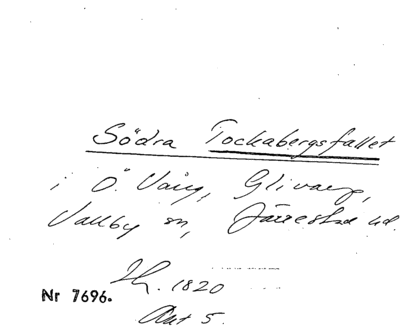 Södra Tockabergsfallet
i Ö. Vång, Glivarp,
Vallby sn, Järrestad hd.
Th. 1820
Nr 7696.
Akt 5.